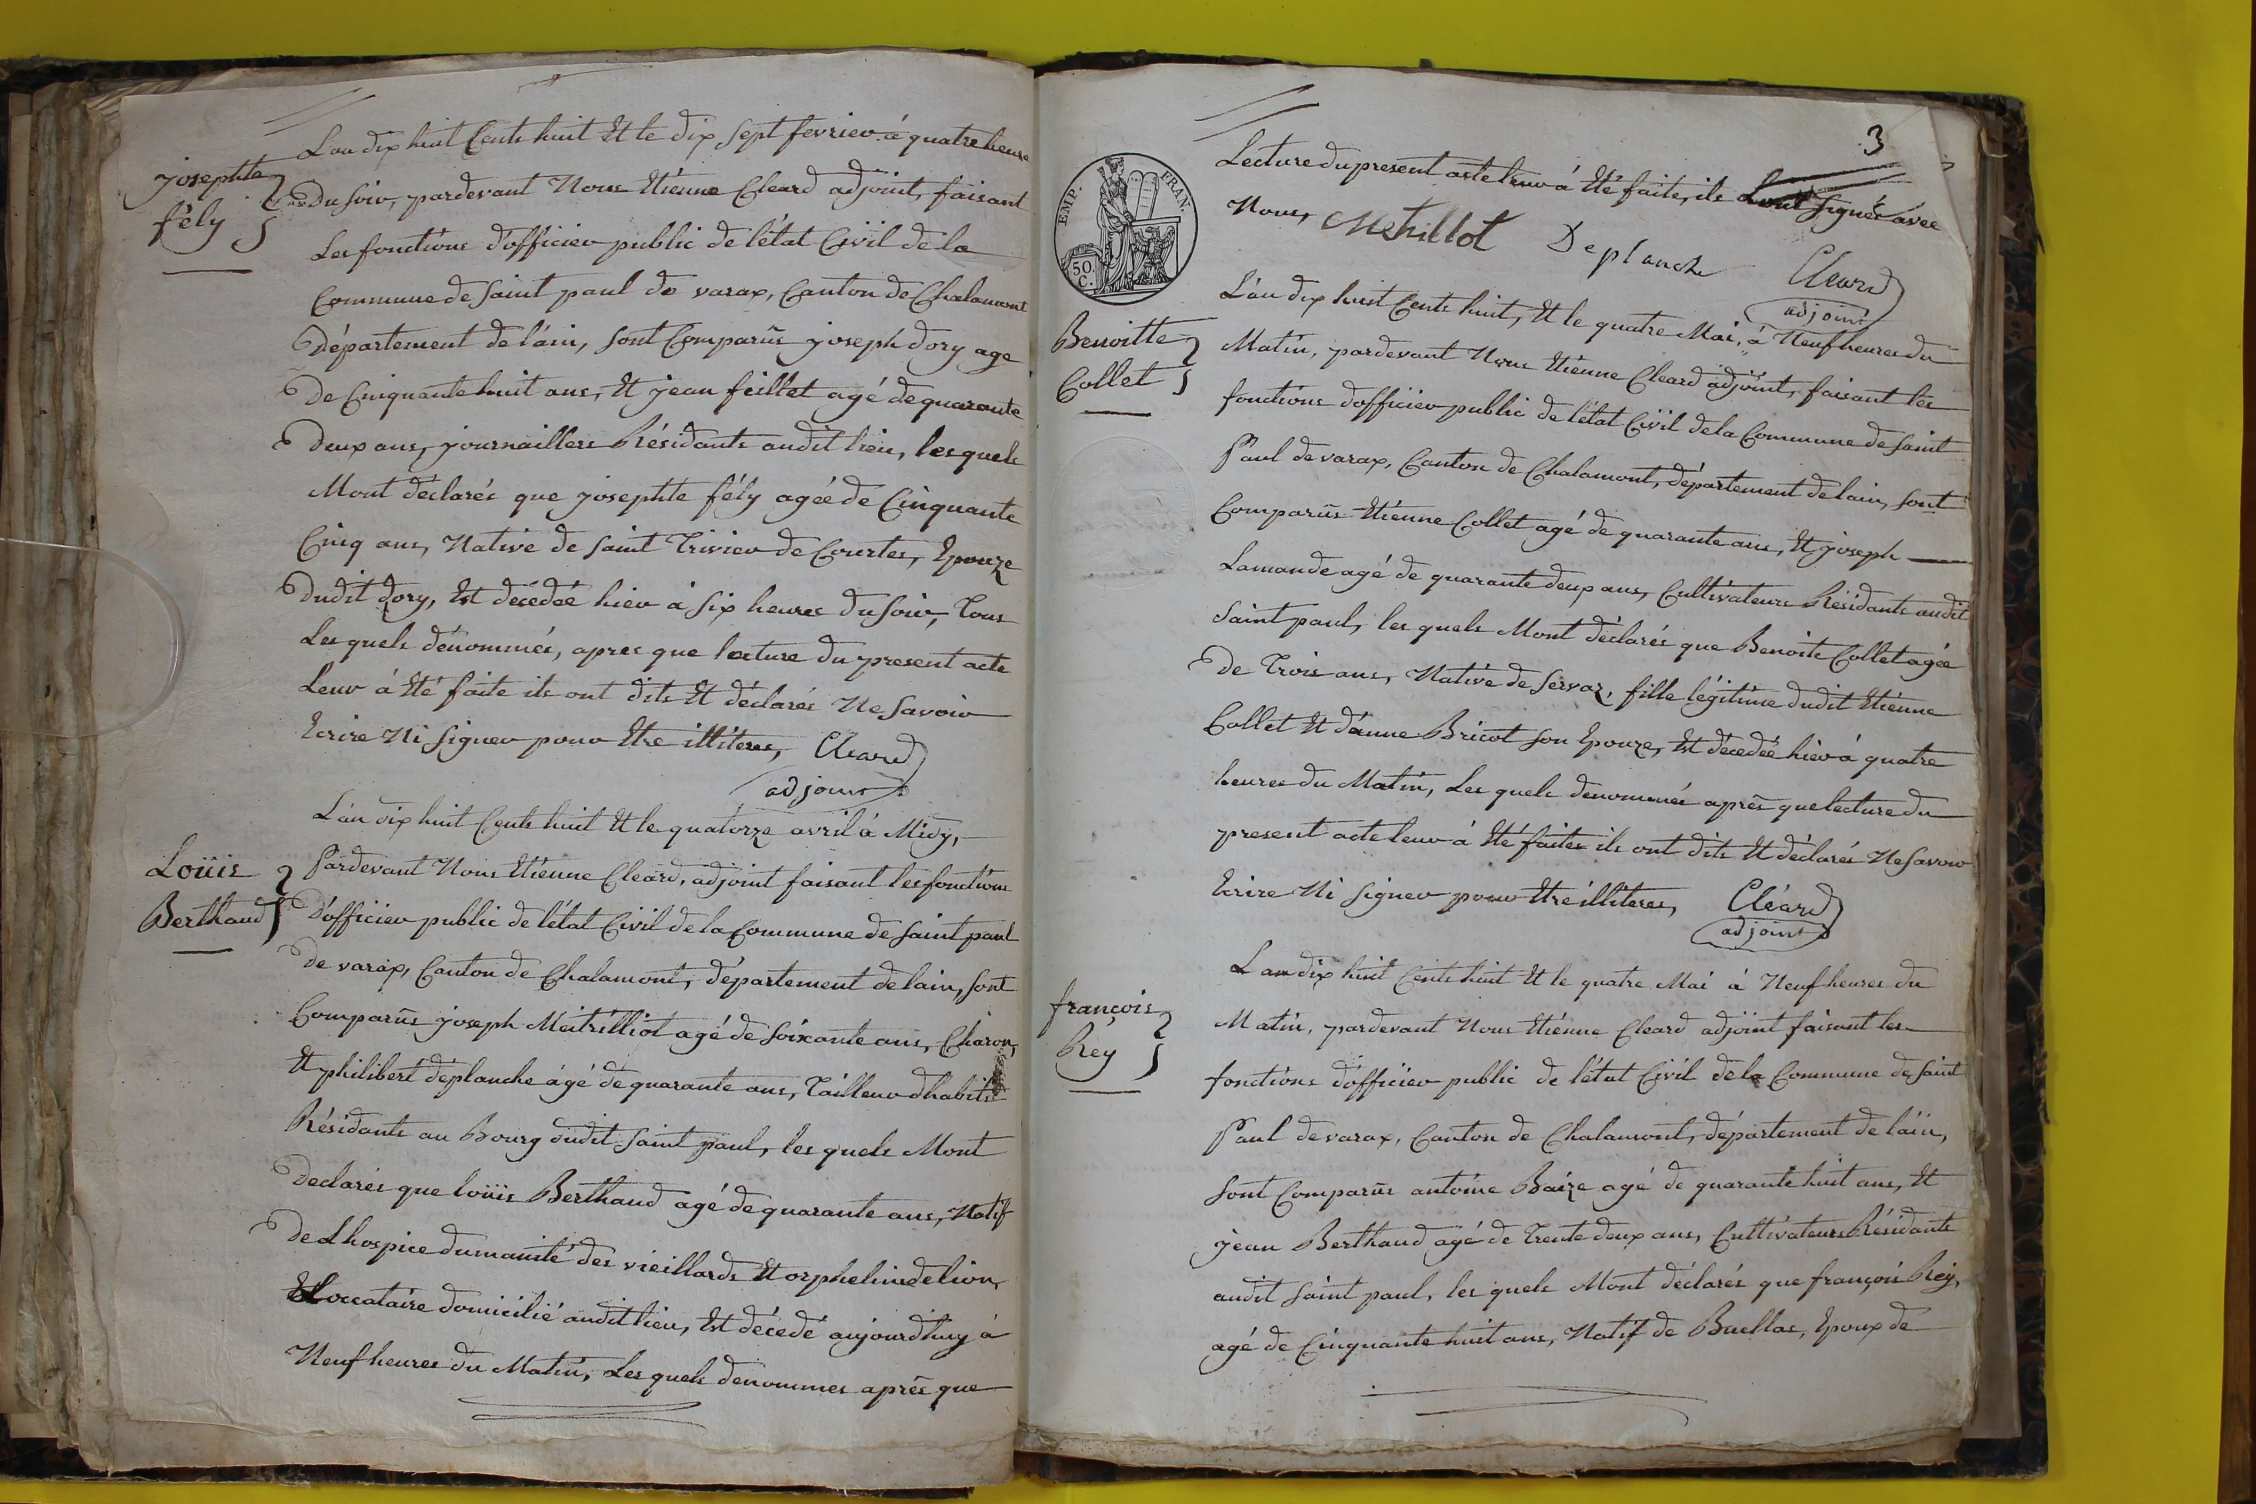 josephte
fély
L'an dix huit Cents huit Et le dix sept fevrier à quatre heure
Du soir, pardevant Nous Etiénne Cleard adjoint, faisant
Les fonctions d'officier public de l'état Civil de la
Commune de Saint paul de varax, Canton de Chalamont
Département de l'ain, sont Comparûs joseph dory age
De Cinquante huit ans, Et jean feillet agé de quarante
Deux ans, journailliers Résidants audit lieu, les quels
Mont déclarés que josephte fély agée de Cinquante
Cinq ans, Native de Saint Trivier de Courtes, Epouze
Dudit dory, Est décédée hier à six heures Du soir, Tous
Les quels dénommés, apres que lecture du present acte
Leur á Eté faite ils ont dits Et déclarés Ne Savoir
Ecrire Ni Signer pour Etre illiteres, Cleard
adjoint
Loüis
Berthaud
L'an dix huit Cents huit Et le quatorze avril á Midy,
Pardevant Nous Etiénne Cleard, adjoint faisant les fonctions
D'officier public de l'état Civil de la Commune de Saint paul
De varax, Canton de Chalamont, département de lain, sont
Comparûs joseph Meitrilliot agé de Soixante ans, Charon,
Et philibert déplanche ágé de quarante ans, Tailleur dhabits
Résidants au Bourg dudit Saint paul, les quels Mont
Declarés que loüis Berthaud agé de quarante ans, Natif
De Lhospice dumanité des vieillards Et orphelins de lion,
Loccataire domicilié audit lieu, Est décedé aujourdhuy à
Neuf heures du Matin, Les quels denommes aprês que
3
Lecture du present acte leur á Eté faite, ils Lont Signés avec
Nous, Metrillot Deplanche Cleard
adjoint
EMP. FRAN.
50.
C.
Benoitte
Collet
L'an dix huit Cents huit, Et le quatre Mai, á Neuf heures du
Matin, pardevant Nous Etiénne Cleard adjoint, faisant les
fonctions d'officier public de l'état Civil de la Commune de Saint
Paul de varax, Canton de Chalamont, département de lain, sont
Comparûs Etiénne Collet agé de quarante ans, Et joseph
Lamande agé de quarante deux ans, Cultivateurs Résidants audit
Saint paul, les quels Mont déclarés que Benoite Collet agée
De Trois ans, Native de Servaz, fille légitime dudit Etiénne
Collet Et d'anne Bricot son Epouze, Est décedée hier á quatre
heures du Matin, Les quels denommés aprês que lecture du
present acte leur á Eté faites ils ont dits Et déclarés Ne Savoir
Ecrire Ni Signer pour Etre illiteres, Cléard
adjoint
françois
Rey
L an dix huit Cents huit Et le quatre Mai à Neuf heures du
Matin, pardevant Nous Etiénne Cleard adjoint faisant les
fonctions d'officier public de l'état Civil de la Commune de Saint
Paul de varax, Canton de Chalamont, département de l'ain,
Sont Comparûs antoine Baize agé de quarante huit ans, Et
jean Berthaud agé de Trente deux ans, Cultivateurs Résidants
audit Saint paul, les quels Mont déclarés que françois Rey,
agé de Cinquante huit ans, Natif de Buellas, Epoux de